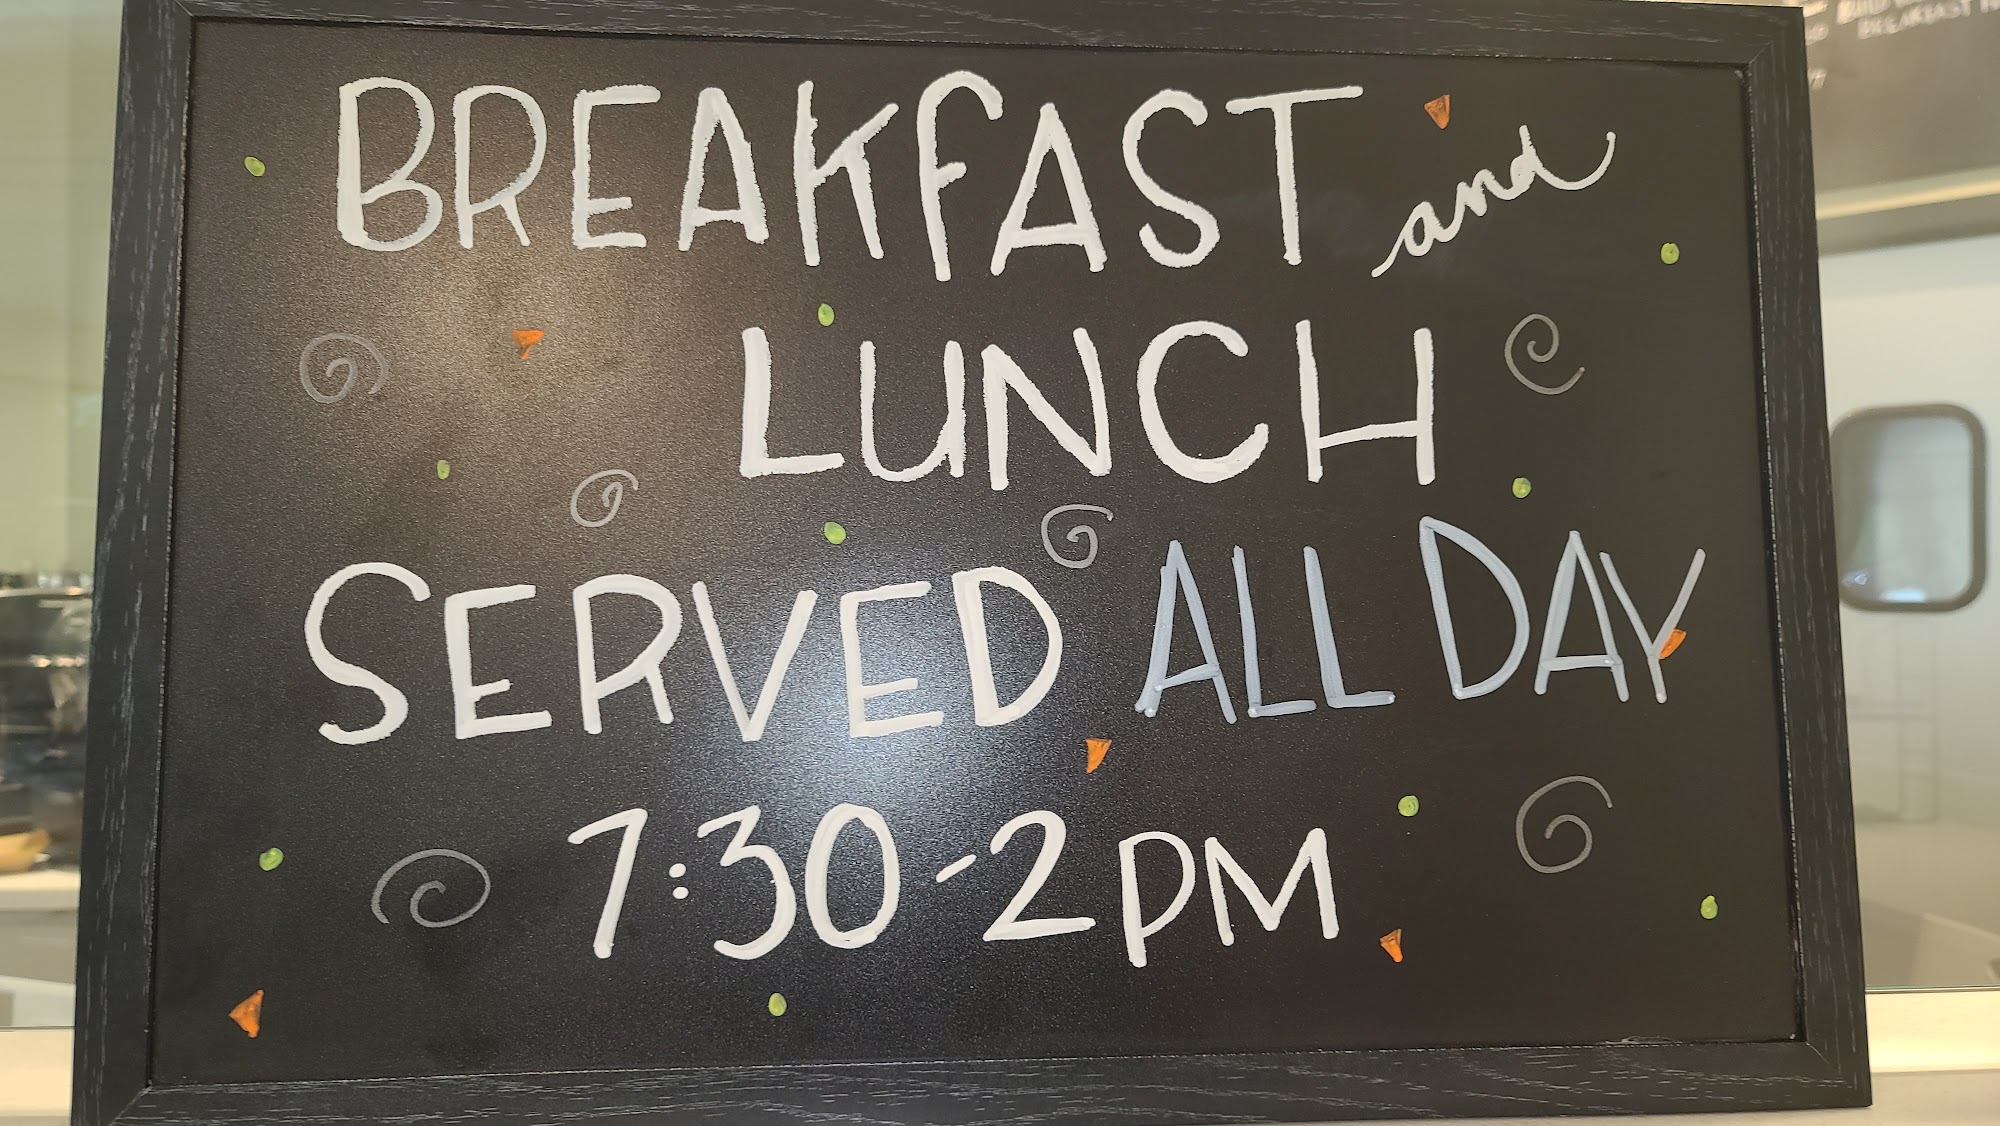 BREAKFAST and
LUNCH
SERVED ALL DAY
7:30-2PM
BREAKFAST